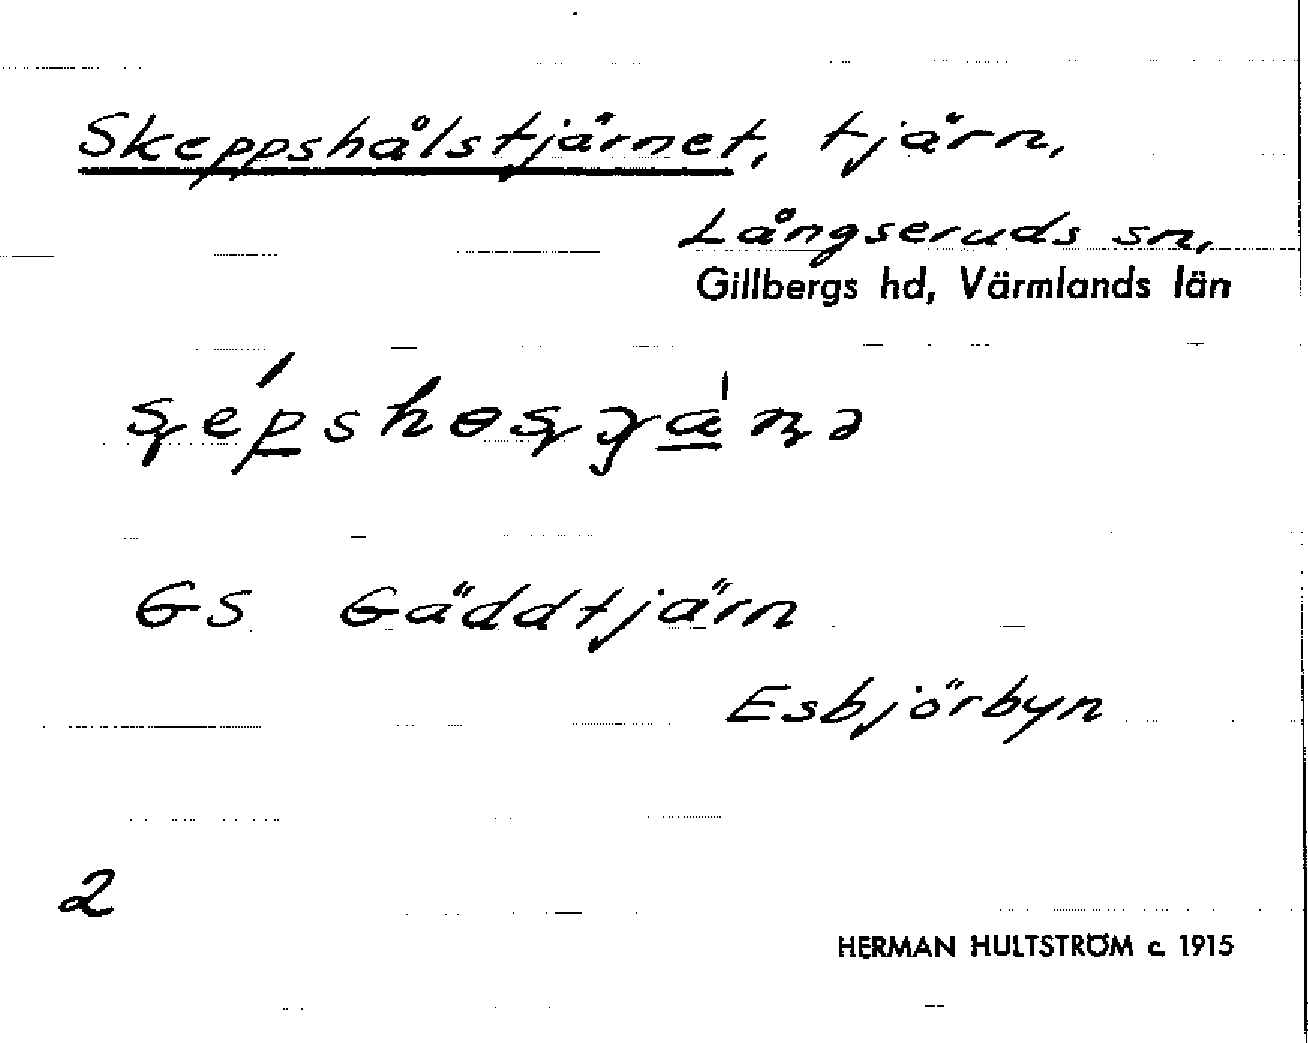 Skeppshålstjärnet, tjärn,
Långseruds sn,
Gillbergs hd, Värmlands län
GS Gäddtjärn
Esbjörbyn
2
HERMAN HULTSTRÖM c. 1915